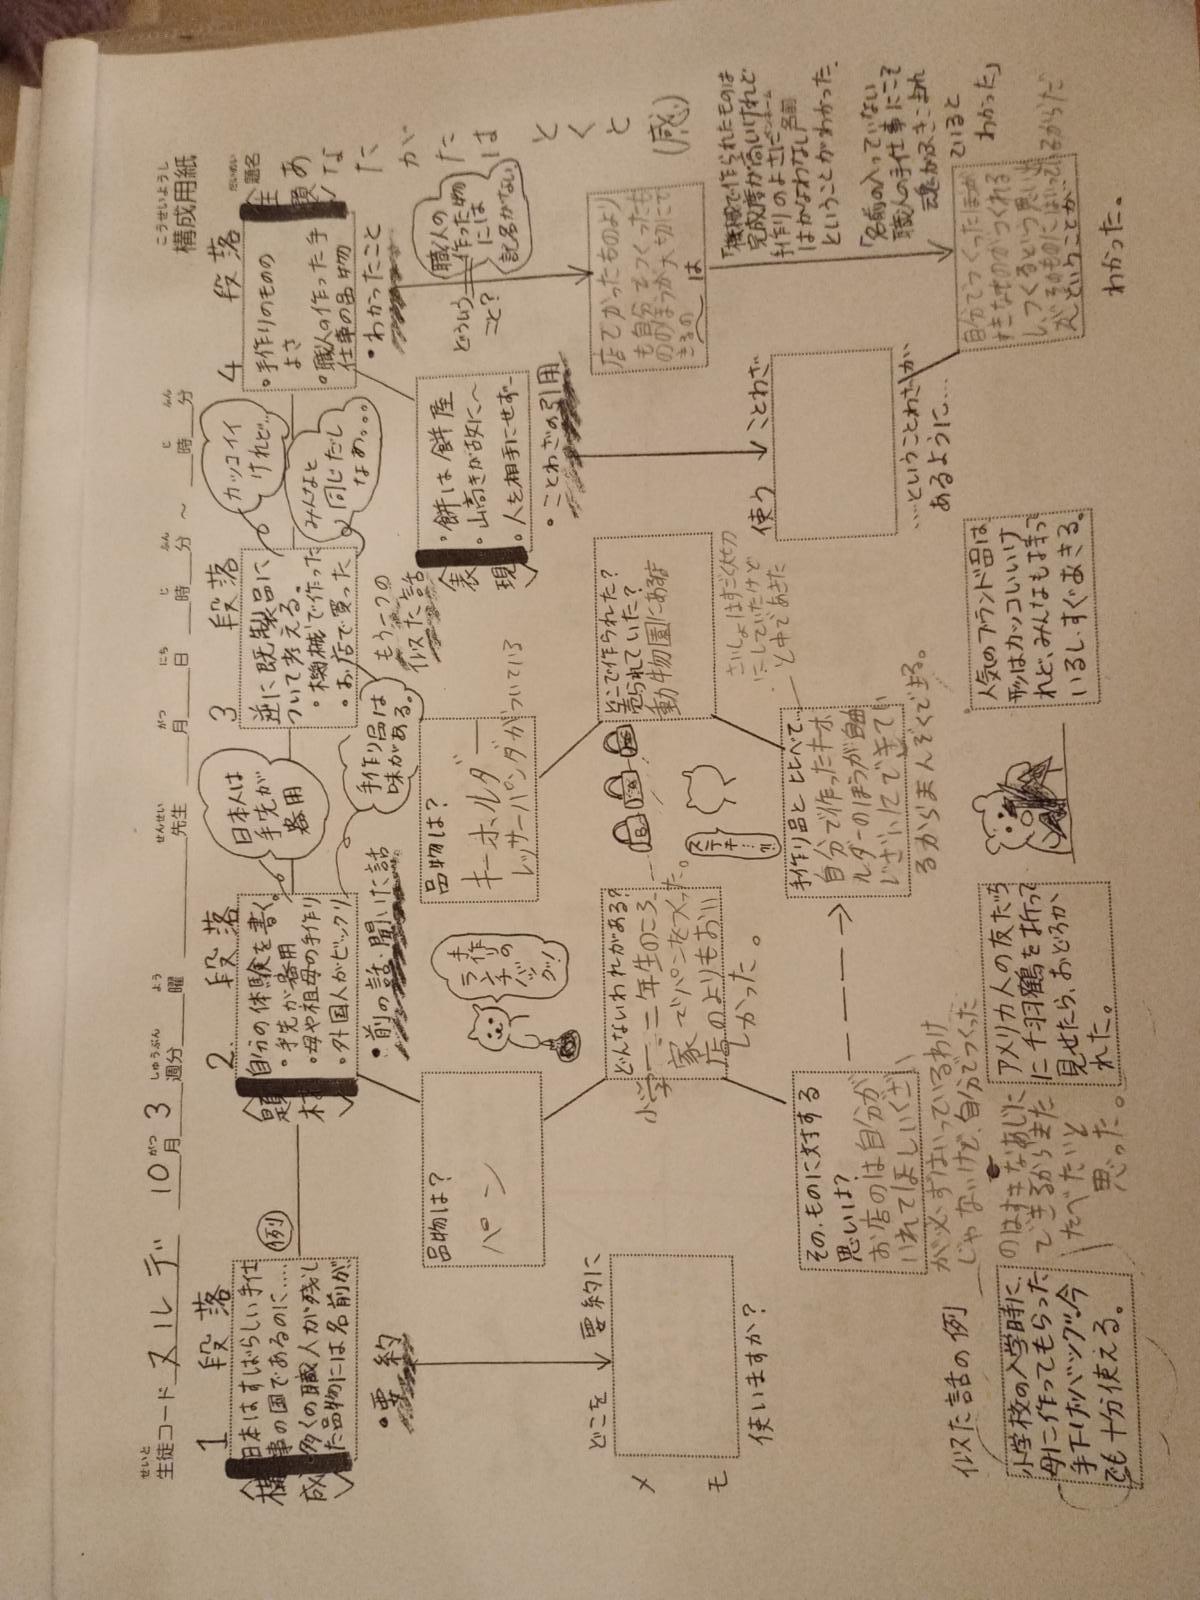 構成用紙
こうせいようし
生徒コード ヌルデ 10月 3 週分 曜 先生 月 日 時 分 ～ 時 分
1 段落
構成
日本はすばらしい手仕
事の国であるのに……
多くの職人が残し
た品物には名前が
例
・要約
どこを 要約に
使いますか？
メモ
似た話の例
小学校の入学時に、
母に作ってもらった
手下げバッグ。今
でも十分使える。
2 段落
題材
自分の体験を書く。
・手先が器用
・母や祖母の手作り
・外国人がビックリ
日本人は
手先が
器用
・前の話、聞いた話
品物は？
パン
手作り
ランチの
バッグ！
どんないわれがある？
小学一、二年生のころ
家でパンをつくった。
店のよりもおい
しかった。
その、ものに対する
思いは？
お店のは自分が
いれてほしいくざい
が必ずはいっているわけ
じゃないけど、自分でつくった
のはすきなあじに
できるからまた
たべたいと
思った。
アメリカ人の友だち
に千羽鶴を折って
見せたら、おどろか
れた。
3 段落
逆に既製品に
ついて考える。
・機械で作った
・お店で買った
カッコイイ
けれど…
みんなと
同じだし
なあ。。。
手作り品は
味がある。
もう一つの
似た話
品物は？
キーホルダー
レッサーパンダがついている
どこで作られた？
売られていた？
動物園にある店
さいしょはすごく大切
にしていたけど
と中であきた
ステキ…!!
手作り品とくらべて…
自分で作ったキーホ
ルダーのほうが自由
じざいにできてい
るからまんぞくできる。
人気のブランド品は
形はカッコいいけ
れど、みんなも持って
いるし、すぐあきる。
4 段落
題名
だいめい
主題
あなたがたはとくと
(感)
・手作りのもの
よさ
・職人の作った手
仕事の品物
・わかったこと
職人の
作った物
には
記名がない
どういう
こと？
表現
・餅は餅屋
・山高きが故に～
・人を相手にせず…
・ことわざの引用
店でかったものより
も自分でつくったも
ののほうが大切にで
きるのは
「機械で作られたものは
完成度が高いけれど
手作りのよさに
はかなわない」
ということがわかった。
「名前の入っていない
職人の手仕事にこそ
魂がふきこまれ
ていると
わかった」
使う ことわざ
…ということわざが
あるように…
自分でつくったほうが
すきなものがつくれる
し、つくるという思い出
がそのものにはいっているからだ
ということが
わかった。